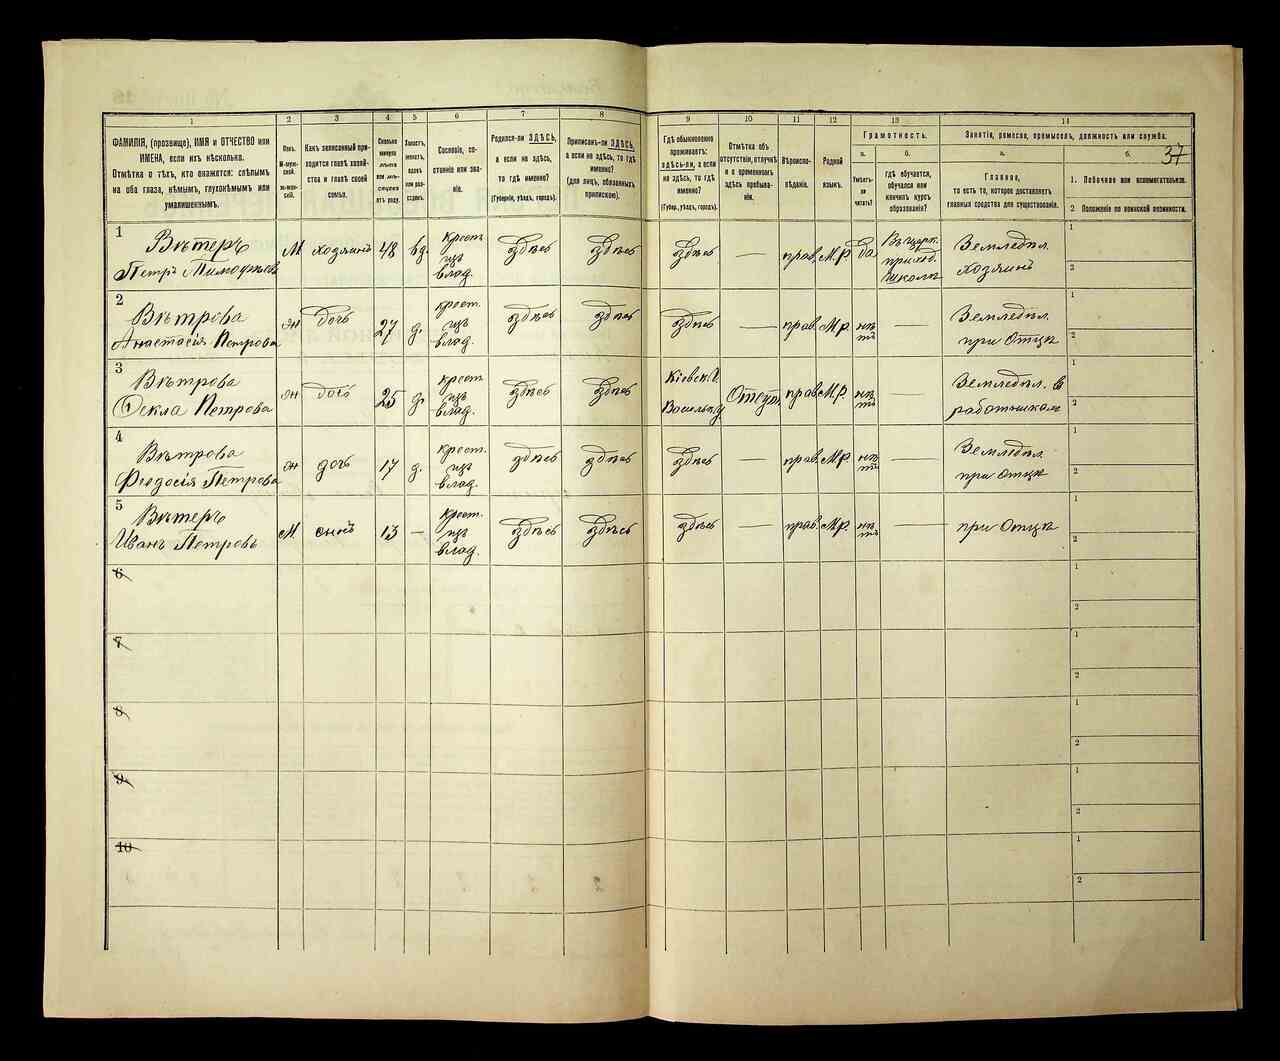 1
2
3
4
5
6
7
8
9
10
11
12
13
14
ФАМИЛІЯ, (прозвище), ИМЯ и ОТЧЕСТВО или
ИМЕНА, если ихъ нѣсколько.
Отмѣтка о тѣхъ, кто окажется: слѣпымъ
на оба глаза, нѣмымъ, глухонѣмымъ или
умалишеннымъ.
Полъ.
М-муж-
ской.
Ж-жен-
скій.
Какъ записанный при-
ходится главѣ хозяй-
ства и главѣ своей
семьи.
Сколько
минуло
лѣтъ
или мѣ-
сяцевъ
отъ роду.
Холостъ,
женатъ,
вдовъ
или раз-
веденъ.
Сословіе, со-
стояніе или зва-
ніе.
Родился-ли ЗДѢСЬ,
а если не здѣсь,
то гдѣ именно?
(Губернія, уѣздъ, городъ).
Приписанъ-ли ЗДѢСЬ,
а если не здѣсь, то гдѣ
именно?
(для лицъ, обязанныхъ
припискою).
Гдѣ обыкновенно
проживаетъ:
здѣсь-ли, а если
не здѣсь, то гдѣ
именно?
(Губер., уѣздъ, городъ).
Отмѣтка объ
отсутствіи, отлучкѣ
и о временномъ
здѣсь пребыва-
ніи.
Вѣроиспо-
вѣданіе.
Родной
языкъ.
Грамотность.
а.
б.
Умѣетъ-
ли
читать?
гдѣ обучается,
обучался или
кончилъ курсъ
образованія?
Занятіе, ремесло, промыселъ, должность или служба.
а.
б.
37
Главное,
то есть то, которое доставляетъ
главныя средства для существованія.
1. Побочное или вспомогательное.
2 Положеніе по воинской повинности.
1
Вѣтеръ
Петръ Тимофѣевъ
М
хозяинъ
48
вд.
крест.
изъ
влад.
здѣсь
здѣсь
здѣсь
—
прав.
М.Р.
да
Въ церк.
приход.
школѣ
Земледѣл.
хозяинъ
1
2
2
Вѣтрова
Анастасія Петрова
ж
дочь
27
д.
крест.
изъ
влад.
здѣсь
здѣсь
здѣсь
—
прав.
М.р.
нѣ
тъ
—
Земледѣл.
при Отцѣ
1
2
3
Вѣтрова
Ѳекла Петрова
ж
дочь
25
д.
крест
изъ
влад.
здѣсь
здѣсь
Кіевск. г.
Васильк. у
прав.
М.Р.
нѣ
тъ
—
Земледѣл. въ
работникахъ
1
2
4
Вѣтрова
Ѳеодосія Петрова
ж
дочь
17
д.
крест.
изъ
влад.
здѣсь
здѣсь
здѣсь
—
прав.
М.р.
нѣ
тъ
—
Земледѣл.
при Отцѣ
1
2
5
Вѣтеръ
Иванъ Петровъ
М
сынъ
13
—
крест.
изъ
влад.
здѣсь
здѣсь
здѣсь
—
прав.
М.р.
нѣ
тъ
—
при Отцѣ
1
2
6
1
2
7
1
2
8
1
2
9
1
2
10
1
2